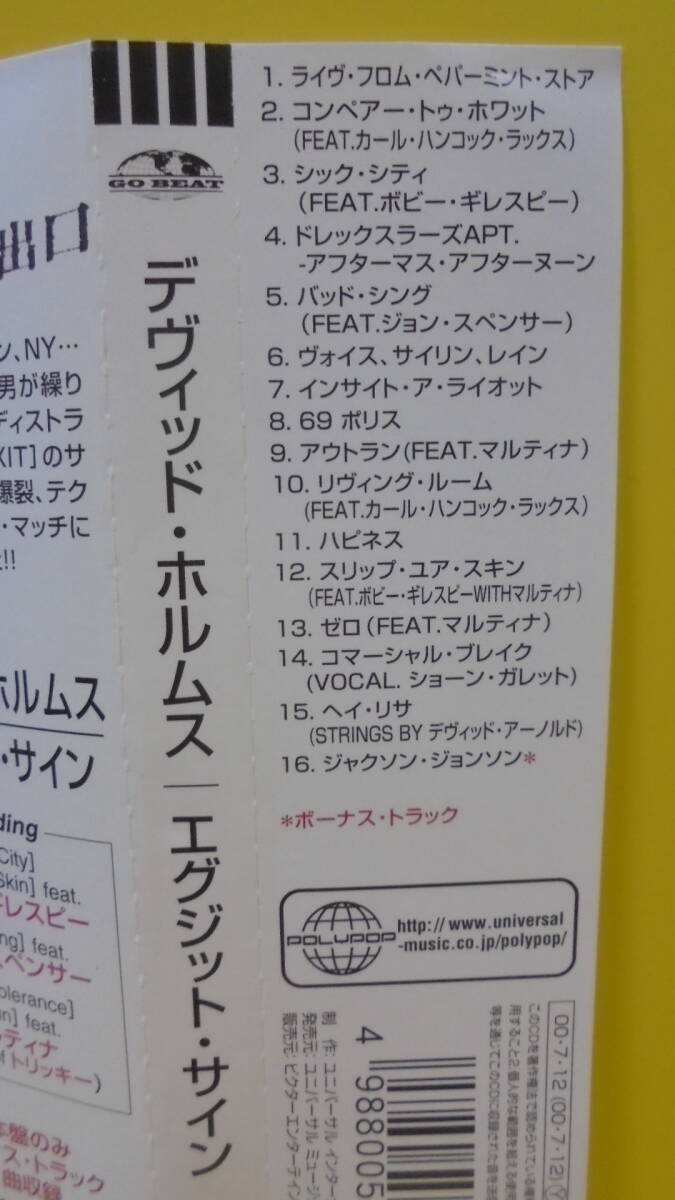 出口
ン、NY…
男が繰り
ディストラ
XIT]のサ
爆裂、テク
・マッチに
!!
ホルムス
・サイン
ding
City]
Skin] feat.
ギレスピー
ng] feat.
スペンサー
olerance]
n] feat.
ルティナ
of トリッキー)
本盤のみ
ス・トラック
曲収録
GO BEAT
デヴィッド・ホルムス | エグジット・サイン
1. ライヴ・フロム・ペパーミント・ストア
2. コンペアー・トゥ・ホワット
(FEAT.カール・ハンコック・ラックス)
3. シック・シティ
(FEAT.ボビー・ギレスピー)
4. ドレックスラーズAPT.
-アフターマス・アフターヌーン
5. バッド・シング
(FEAT.ジョン・スペンサー)
6. ヴォイス、サイリン、レイン
7. インサイト・ア・ライオット
8. 69 ポリス
9. アウトラン(FEAT.マルティナ)
10. リヴィング・ルーム
(FEAT.カール・ハンコック・ラックス)
11. ハピネス
12. スリップ・ユア・スキン
(FEAT.ボビー・ギレスピーWITHマルティナ)
13. ゼロ(FEAT.マルティナ)
14. コマーシャル・ブレイク
(VOCAL. ショーン・ガレット)
15. ヘイ・リサ
(STRINGS BY デヴィッド・アーノルド)
16. ジャクソン・ジョンソン*
*ボーナス・トラック
POLYPOP
http://www.universal
-music.co.jp/polypop/
制 作: ユニバーサル インター
発売元: ユニバーサル ミュージ
販売元: ビクターエンターテイン
4 988005
00・7・12 (00・7・12) (Y
このCDを著作権法で認められている
用すること2 個人的な範囲を超える使
等を通じてこのCDに収録された音を送